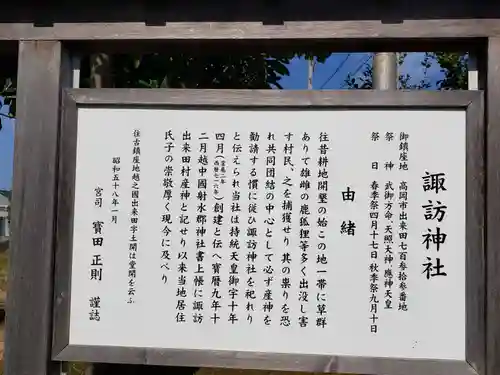 諏訪神社
御鎮座地 高岡市出来田七百参拾参番地
祭神 武御方命、天照大神、應神天皇
祭日 春季祭四月十七日 秋季祭九月十日
由緒
往昔耕地開墾の始この地一帯に草群
ありて雄雌の鹿狐狸等多く出没し害
す村民、之を捕獲せり其の祟りを恐
れ共同団結の中心として必ず産神を
勧請する慣に従ひ諏訪神社を祀れり
と伝えられ当社は持統天皇御宇十年
四月創建と伝へ宝暦九年十
二月越中國射水郡神社書上帳に諏訪
出来田村産神と記せり以来当地居住
氏子の崇敬厚く現今に及べり
往古鎮座地越之國出来田字土開は愛開を云ふ
昭和五十八年一月
宮司 寳田正則 謹誌